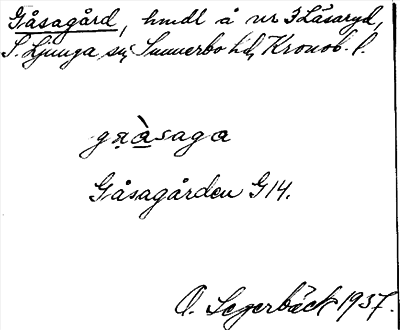 Gåsagård, hmdl å nr 3 Låsaryd,
S. Ljunga sn, Sunnerbo hd, Kronob. l.
Gåsagården G 14.
O. Segerbäck 1937.